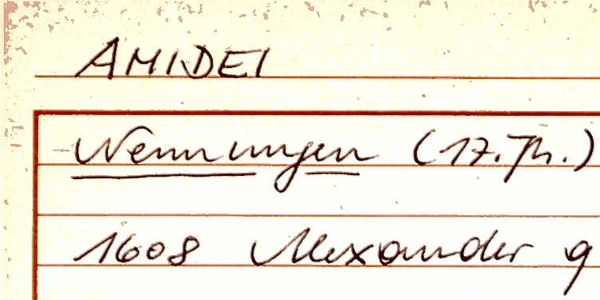 AMIDEI
Nennungen (17. Jh.)
1608 Alexander q